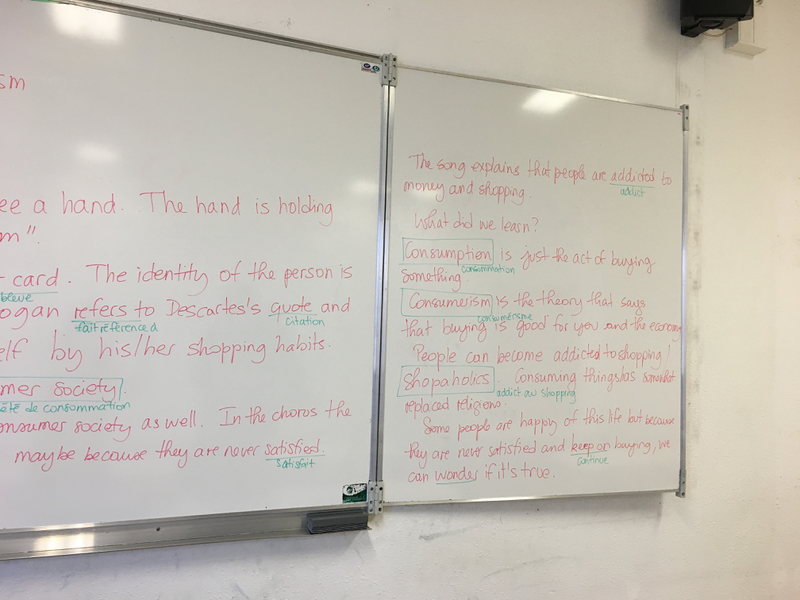 sm
ee a hand. The hand is holding
m".
card. The identity of the person is
bleue
ogan refers to Descartes's quote and
fait référence à
citation
elf by his/her shopping habits.
mer society.
été de consommation
onsumer society as well. In the chorus the
maybe because they are never satisfied.
satisfait
The song explains that people are addicted to
addict
money and shopping.
What did we learn?
Consumption is just the act of buying
consommation
something
Consumerism is the theory that says
consumérisme
that buying is good for you and the economy
People can become addicted to shopping!
Shopaholics. Consuming things has somewhat
addict au shopping
replaced religions
Some people are happy of this life but because
they are never satisfied and keep on buying, we
continue
can wonder if it's true.